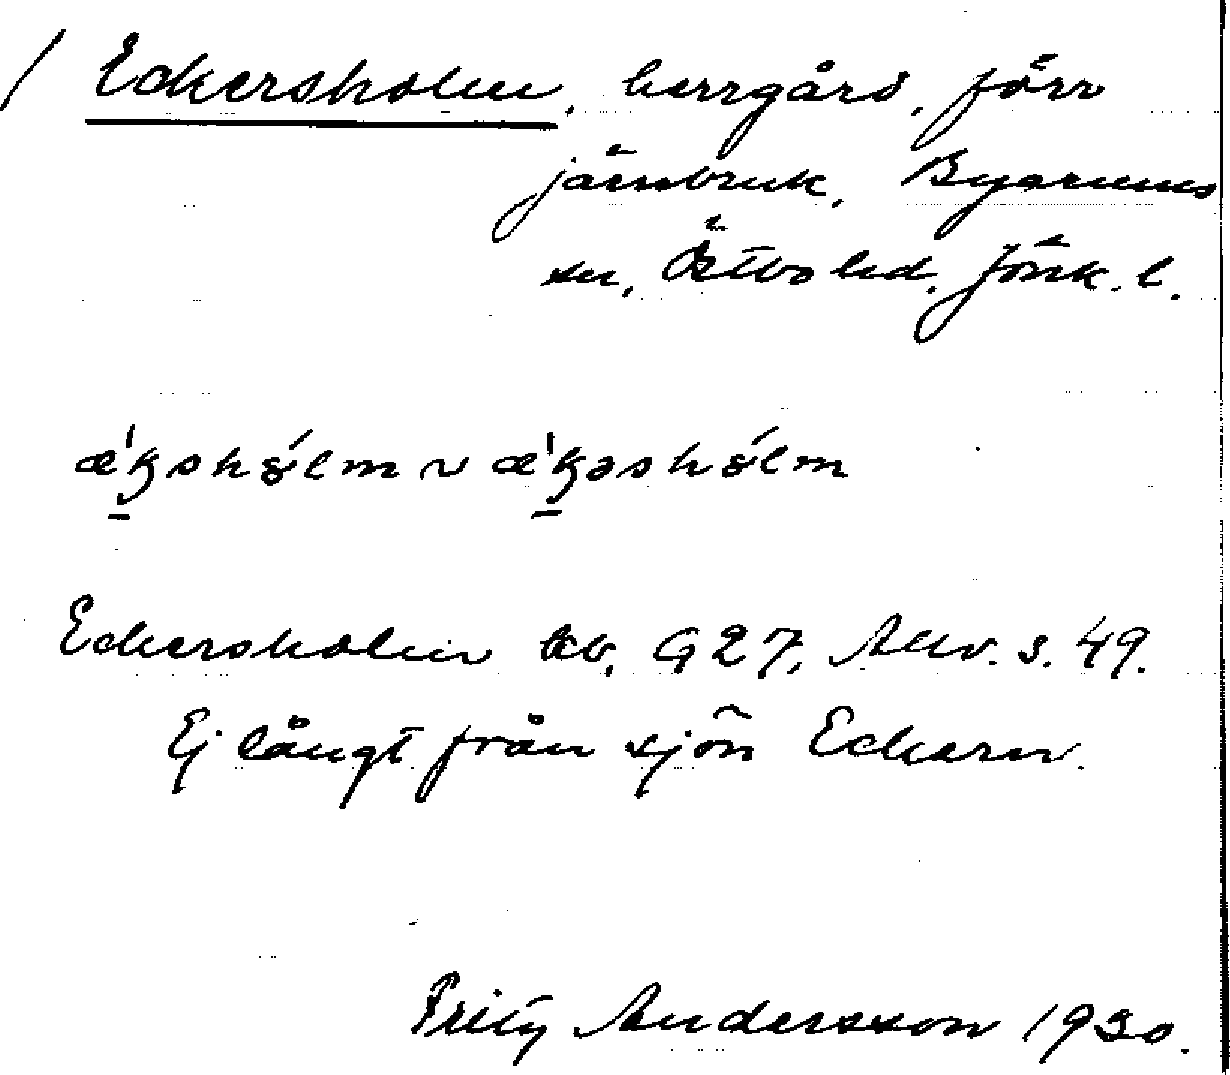 / Eckersholm, herrgård, förr
järnbruk, Byarums
sn, Östbo hd. Jönk. l.
Eckersholm kb, G27, Allv. s. 49.
Ej långt från sjön Eckern.
Fritz Andersson 1930.